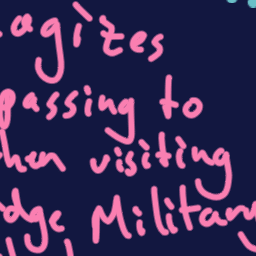 agizes
passing to
hen visiting
dge Militar